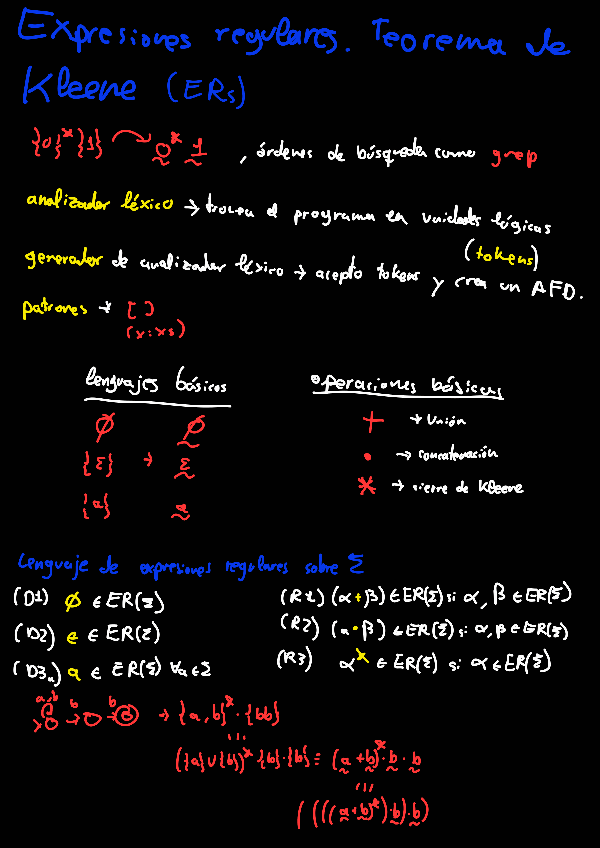 Expresiones regulares. Teorema de
Kleene (ERs)
{0}*{1} 0* 1 , órdenes de búsqueda como grep
analizador léxico → trocea el programa en unidades lógicas
(tokens)
generador de analizador léxico → acepto tokens y crea un AFD.
patrones → []
(x:xs)
lenguajes básicos
operaciones básicas
∅ ∅
+ → Unión
{Σ} → Σ
• → concatenación
* → cierre de Kleene
{a} a
Lenguaje de expresiones regulares sobre Σ
(D1) ∅ ∈ ER(Σ)
(R1) (α+β) ∈ ER(Σ) si α, β ∈ ER(Σ)
(D2) e ∈ ER(Σ)
(R2) (α•β) ∈ ER(Σ) si α, β ∈ ER(Σ)
(D3ₐ) a ∈ ER(Σ) ∀a ∈ Σ
(R3) α* ∈ ER(Σ) si α ∈ ER(Σ)
a,b b b → {a,b}*·{bb}
({a}∪{b})*{b}·{b} ≡ (a+b)*·b·b
((((a+b)*)·b)·b)